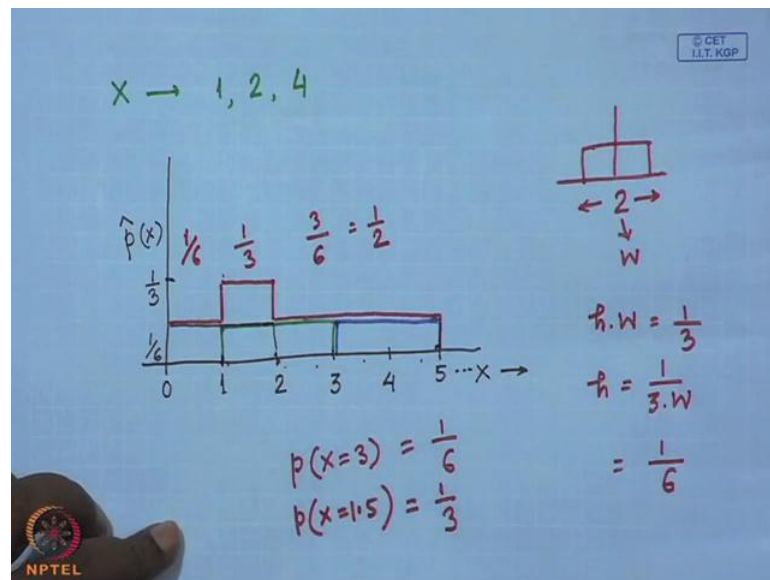 © CET
I.I.T. KGP
X → 1, 2, 4
p̂(x)
1/6 1/3 3/6 = 1/2
1/3
1/6
0 1 2 3 4 5 ... X →
← 2 →
↓
W
h.W = 1/3
h = 1/3.W
= 1/6
p(x=3) = 1/6
p(x=1.5) = 1/3
NPTEL